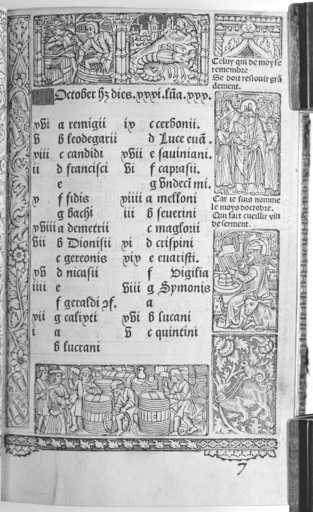 October hz dies. xxxi. lūa. xxx.
xvi a remigii
v b leodegarii
xiii c candidi
ii d francisci
e
x f fidis
g bachi
xviii a demetrii
vii b Dionisii
c gereonis
xv d nicasii
iiii e
f geraldi
xii g calixti
i a
b lucrani
ix c cerbonii.
d Luce euā.
xvii e sauiniani.
vi f caprasii.
g vndeci mi.
xiiii a melloni
iii b seuerini
c maglorii
xi d crispini
xix e euaristi.
f Vigilia
viii g Symonis
a
xvi b lucani
v c quintini
Celuy qui de moyse
remembre
Se doit resiouir grā
dement.
Car ie suis nomme
le moys doctobre.
Qui fait cueillir vin
de serment.
7